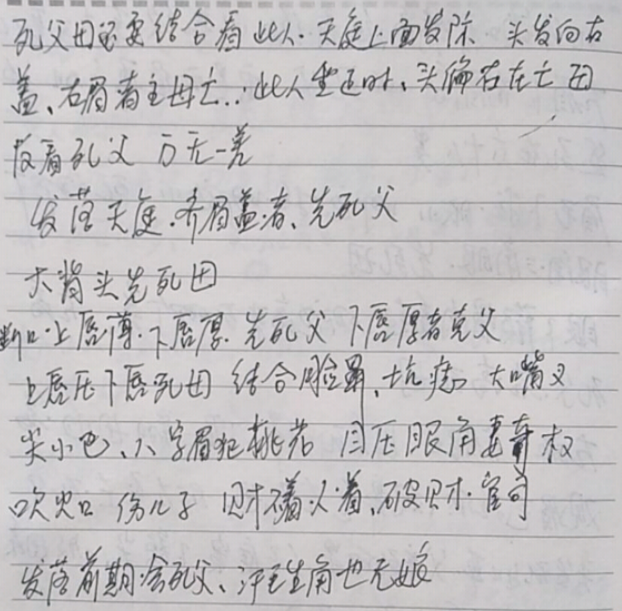 死父母必要结合看此人.天庭上面发际.头发向右
盖、右眉者主母亡..此人坐正时、头偏右在亡母
反看死父 万无一差
发落天庭.齐眉盖者、先死父
大背头先死母
断口.上唇薄.下唇厚.先死父 下唇厚者克父
上唇压下唇死母 结合脸、坑痣 大嘴叉
尖小巴、八字眉犯桃花 眉压眼角妻夺权
吹火口 伤儿子 财不着、破财.官司
发落前期会死父、生角也无娘